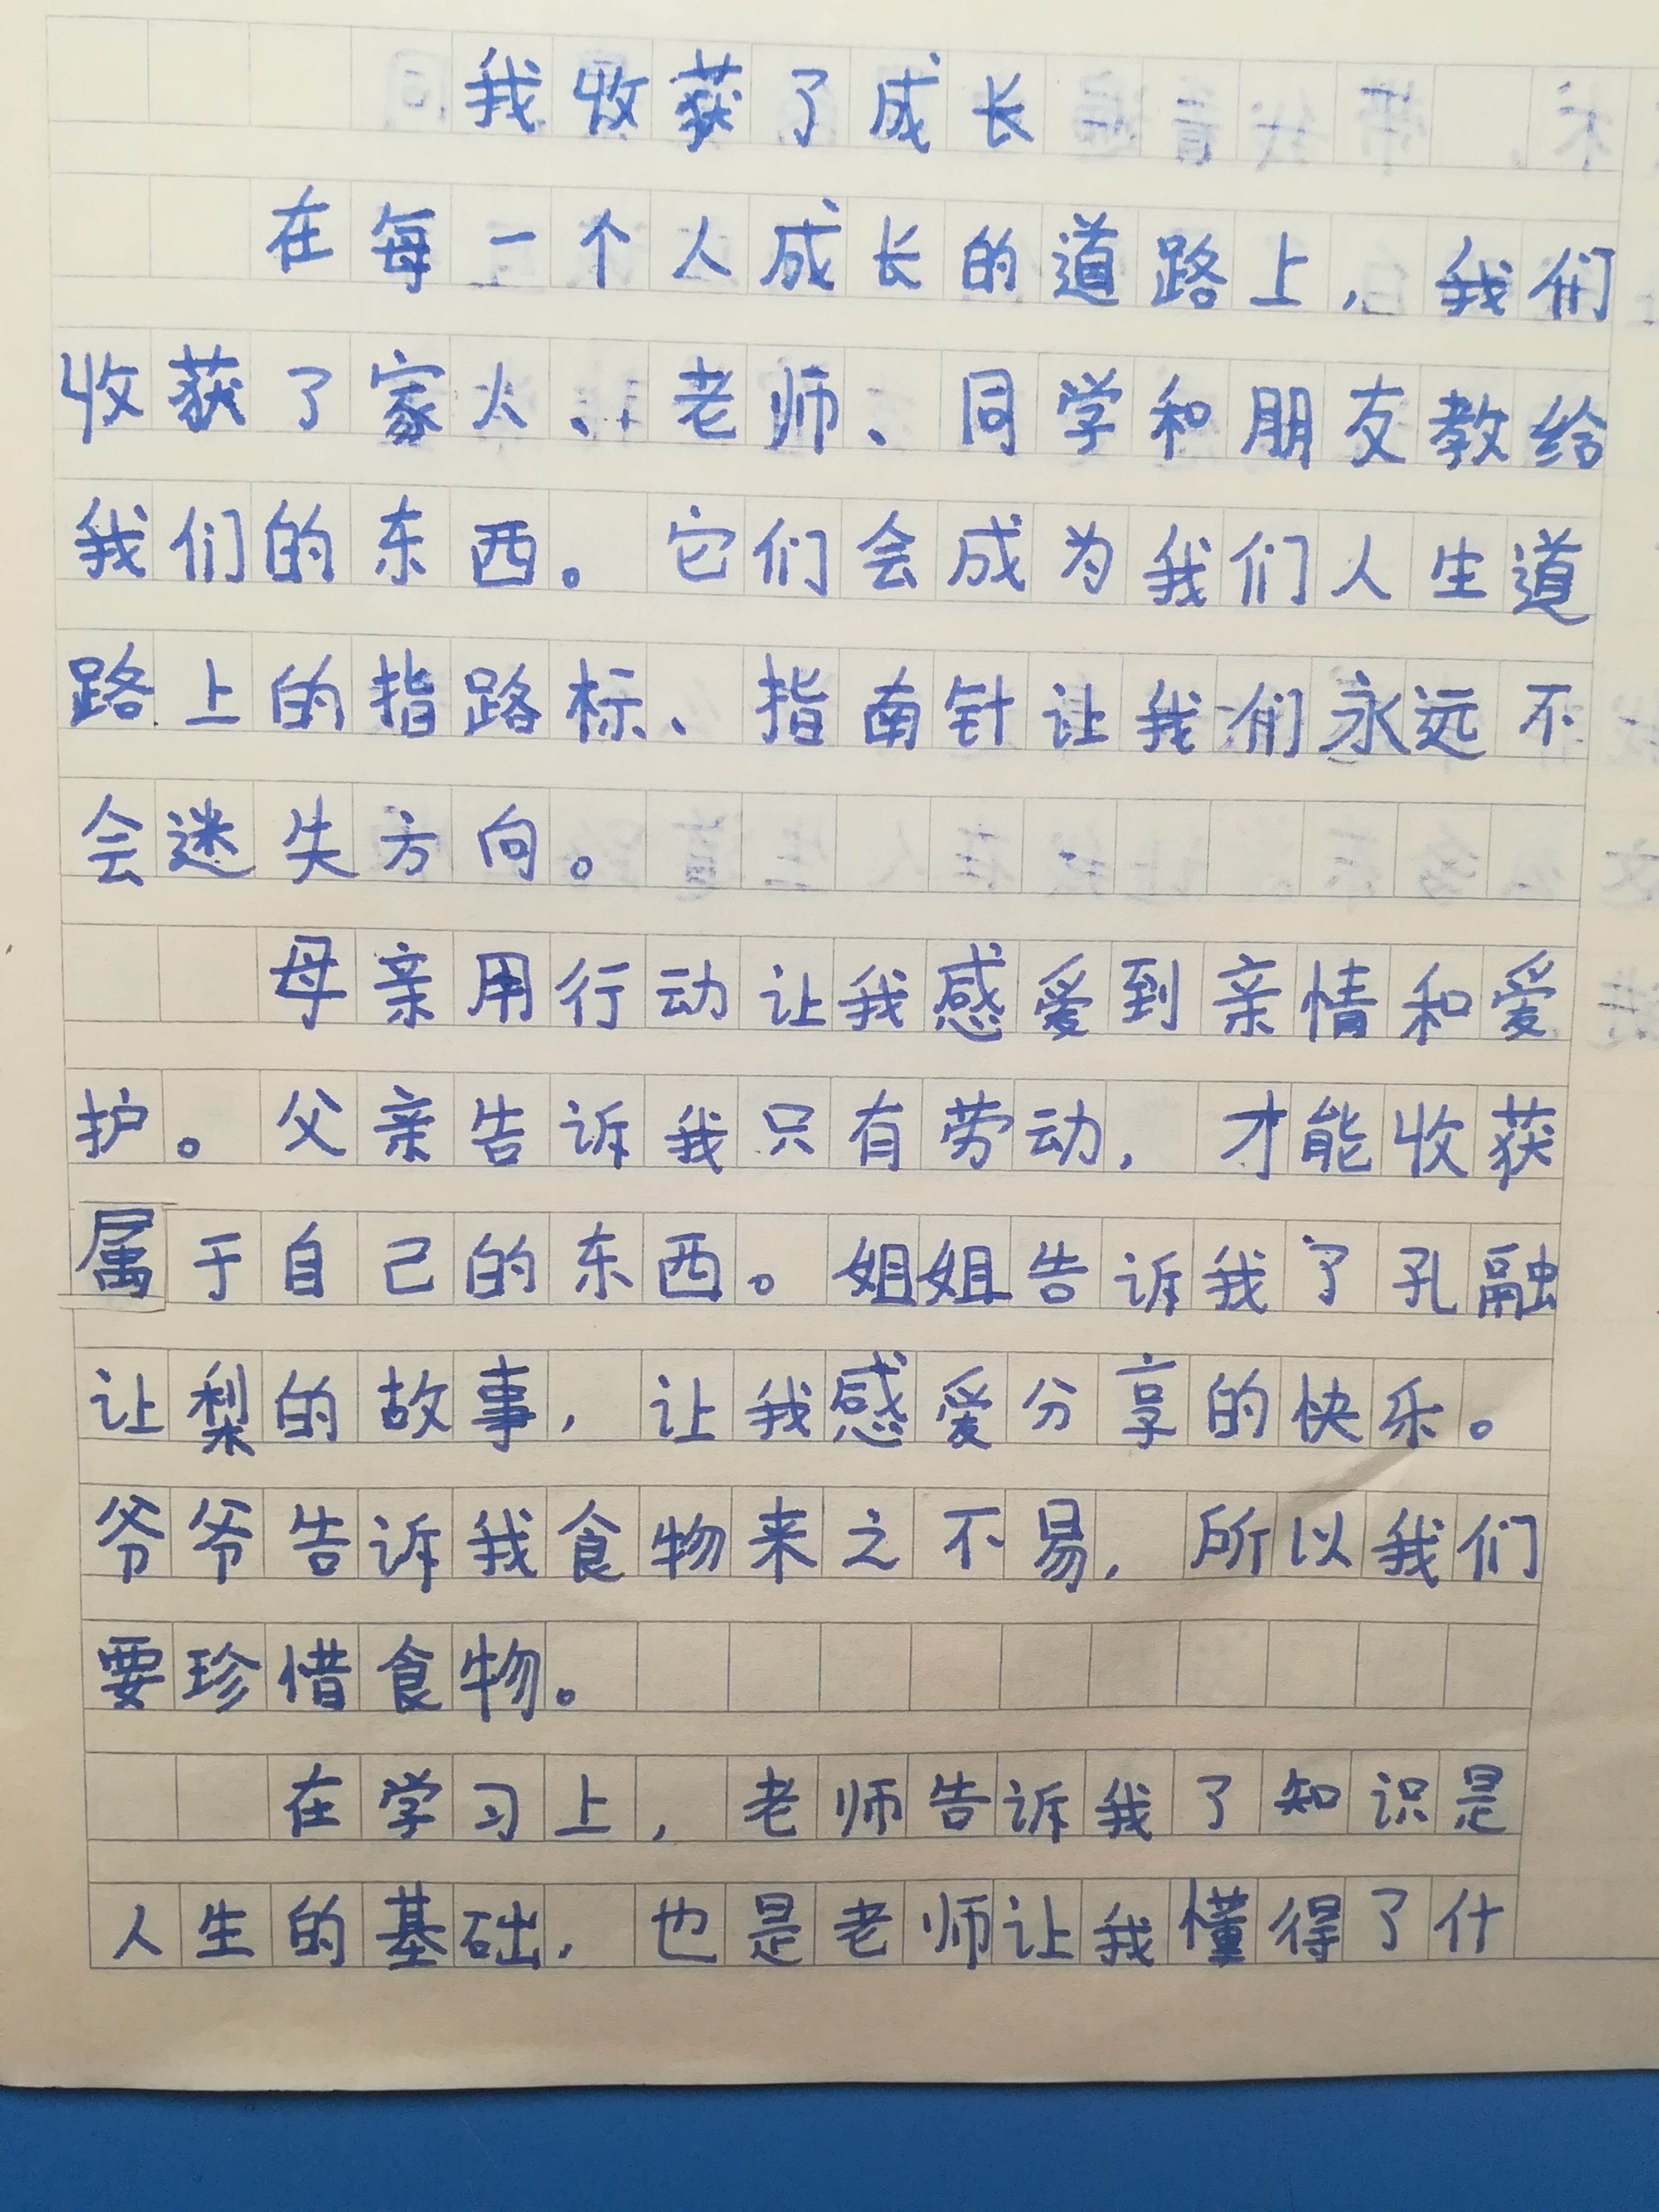 我收获了成长
在每一个人成长的道路上，我们
收获了家人、老师、同学和朋友教给
我们的东西。它们会成为我们人生道
路上的指路标、指南针让我们永远不
会迷失方向。
母亲用行动让我感爱到亲情和爱
护。父亲告诉我只有劳动，才能收获
属于自己的东西。姐姐告诉我了孔融
让梨的故事，让我感爱分享的快乐。
爷爷告诉我食物来之不易，所以我们
要珍惜食物。
在学习上，老师告诉我了知识是
人生的基础，也是老师让我懂得了什